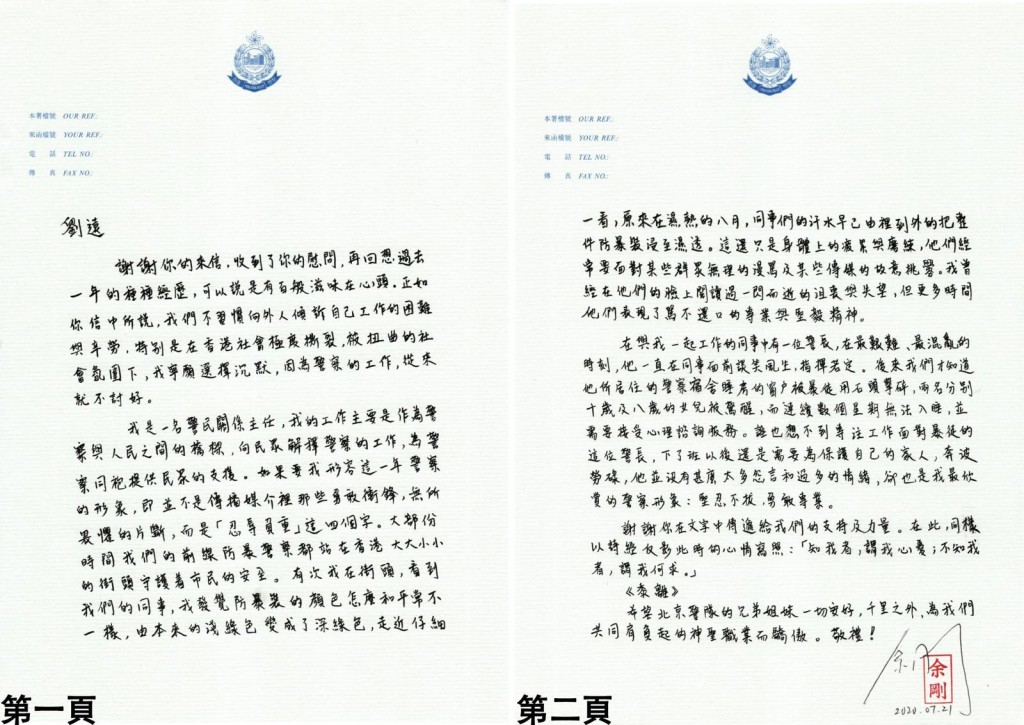 本署檔號 OUR REF.:
來函檔號 YOUR REF.:
電 話 TEL NO.:
傳 真 FAX NO.:
劉遠
謝謝你的來信,收到了你的慰問,再回想過去
一年的種種經歷,可以說是有百般滋味在心頭。正如
你信中所說,我們不習慣向外人傾訴自己工作的困難
與辛勞,特別是在香港社會極度撕裂、被扭曲的社
會氛圍下,我寧願選擇沉默,因為警察的工作,從來
就不討好。
我是一名警民關係主任,我的工作主要是作為警
察與人民之間的橋樑,向民眾解釋警察的工作,為警
察同袍提供民眾的支援。如果要我形容這一年警察
的形象,即並不是傳播媒介裡那些勇敢衝鋒,無所
畏懼的片斷,而是「忍辱負重」這四個字。大部份
時間我們的前線防暴警察都站在香港大大小小
的街頭守護著市民的安全。有次我在街頭,看到
我們的同事,我發覺防暴裝的顏色怎麼和平常不
一樣,由本來的淺綠色變成了深綠色,走近仔細
第一頁
本署檔號 OUR REF.:
來函檔號 YOUR REF.:
電 話 TEL NO.:
傳 真 FAX NO.:
一看,原來在濕熱的八月,同事們的汗水早已由裡到外的把整
件防暴裝浸至濕透。這還只是身體上的疲累與磨練,他們經
常要面對某些群眾無理的謾罵及某些傳媒的故意挑釁。我曾
經在他們的臉上閱讀過一閃而逝的沮喪與失望,但更多時間
他們表現了罵不還口的專業與堅毅精神。
在與我一起工作的同事中有一位警長,在最艱難、最混亂的
時刻,他一直在同事面前談笑風生,指揮若定。後來我們才知道
他所居住的警察宿舍睡房的窗戶被暴徒用石頭擊碎,兩名分別
十歲及八歲的女兒被驚醒,而連續數個星期無法入睡,並
需要接受心理諮詢服務。誰也想不到專注工作面對暴徒的
這位警長,下了班以後還是需要為保護自己的家人,奔波
勞碌,他並沒有甚麼太多怨言和過多的情緒,卻也是我最欣
賞的警察形象:堅忍不拔,勇敢專業。
謝謝你在文字中傳遞給我們的支持及力量。在此,同樣
以詩經反影此時的心情寫照:「知我者,謂我心憂;不知我
者,謂我何求。」
《黍離》
希望北京警隊的兄弟姐妹一切安好,千里之外,為我們
共同肩負起的神聖職業而驕傲。敬禮!
余剛
余剛
2020.07.21
第二頁